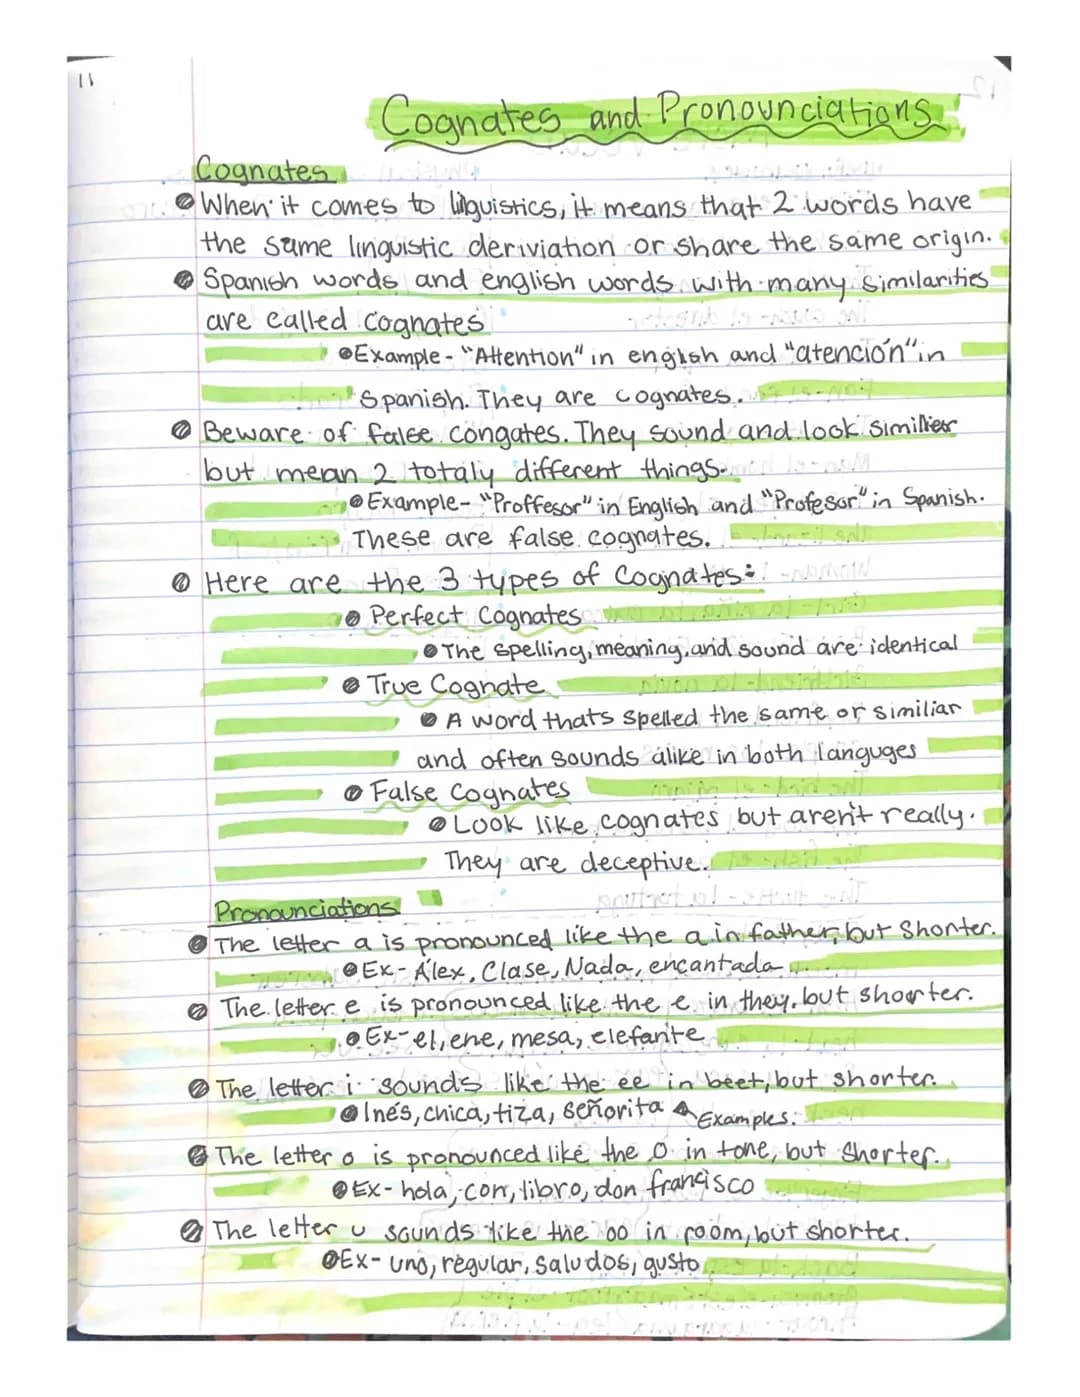 11
Cognates and Pronounciations
Cognates
When it comes to linguistics, it means that 2 words have
the same linguistic deriviation or share the same origin.
Spanish words and english words with many similarities
are called cognates
Example - "Attention" in english and "atención" in
Spanish. They are cognates.
Beware of false congates. They sound and look similier
but mean 2 totaly different things.
Example- "Proffesor" in English and "Profesor" in Spanish.
These are false cognates.
Here are the 3 types of Cognates:
Perfect Cognates
The spelling, meaning, and sound are identical
True Cognate
A word thats spelled the same or similiar
and often sounds alike in both languges
False Cognates
Look like cognates but aren't really.
They are deceptive.
Pronounciations
The letter a is pronounced like the a in father, but Shorter.
Ex- Álex, Clase, Nada, encantada
The letter e is pronounced like the e in they, but shorter.
Ex- el, ene, mesa, elefante
The letter i sounds like the ee in beet, but shorter.
Inés, chica, tiza, señorita Examples.
The letter o is pronounced like the o in tone, but Shorter.
Ex- hola, con, libro, don francisco
The letter u sounds like the oo in room, but shorter.
Ex- uno, regular, saludos, gusto